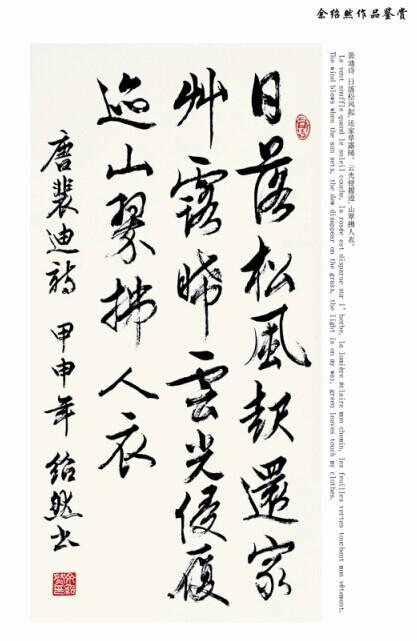 余绍然作品鉴赏
裴迪诗 日落松风起，还家草露晞。云光侵履迹，山翠拂人衣。
Le vent souffle quand le soleil couche, la rosée est disparue sur l' herbe, la lumière éclaire mon chemin, les feuilles vertes touchent mon vêtement.
The wind blows when the sun sets, the dew disappear on the grass, the light is on my way, green leaves touch my clothes.
日落松風起還家
艸露晞雲光侵履
迹山翠拂人衣
唐裴迪詩 甲申年 绍然书